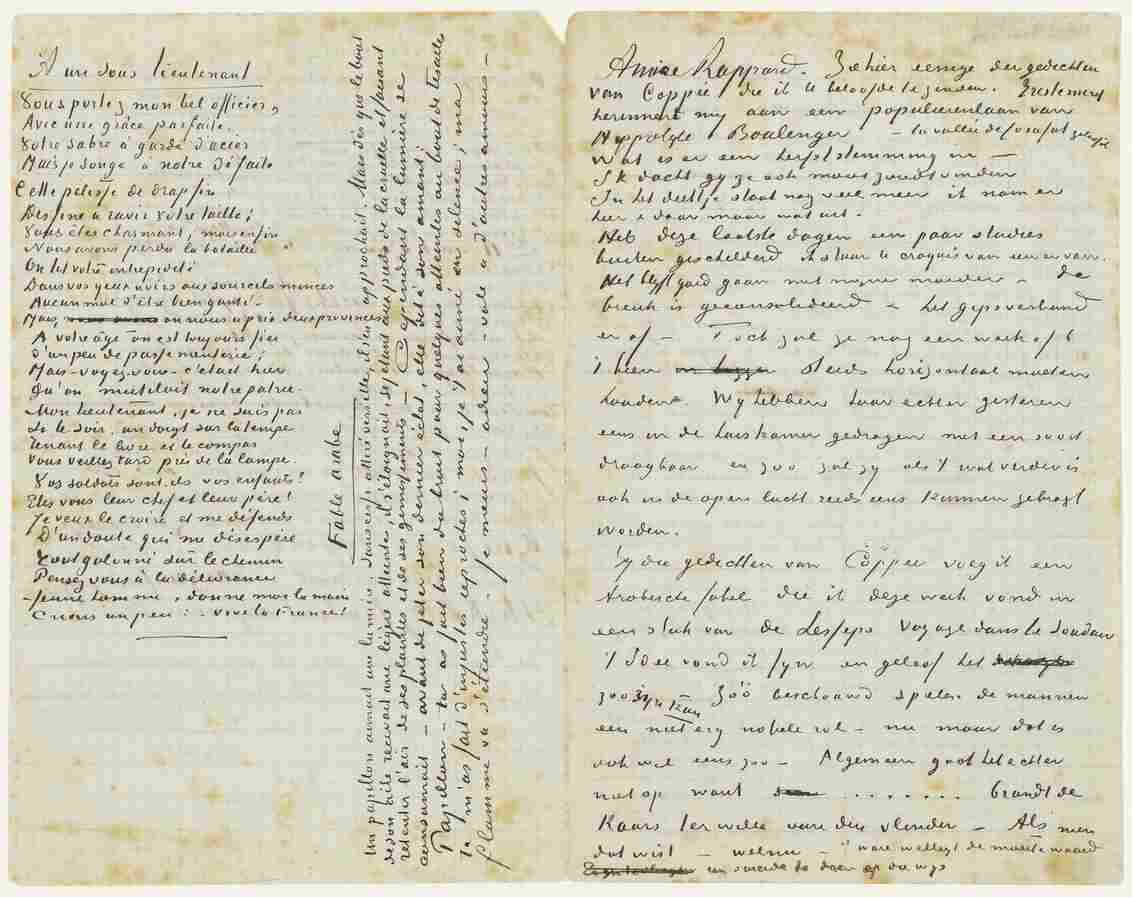 A un sous lieutenant
Vous portez mon bel officier,
Avec une grâce parfaite.
Votre sabre à garde d'acier
Mais je songe à notre défaite
Cette pelisse de drap fin
Dessine à ravir votre taille;
Vous êtes charmant, mais enfin
Nous avons perdu la bataille
On lit votre intrépidité
Dans vos yeux noirs aux sourcils minces
Aucun mal d'être bien ganté –
Mais, on nous a pris deux provinces
A votre âge on est toujours fier
D'un peu de passementerie;
Mais – voyez vous – c'était hier
Qu'on mutilait notre patrie.
Mon lieutenant, je ne sais pas
Si le soir, un doigt sur la tempe
Tenant le livre et le compas
Vous veillez tard près de la lampe.
Vos soldats sont ils vos enfants?
Etes vous leur chef et leur père?
Je veux le croire et me défends
D'un doute qui me désespère
Tout galonné sur le chemin
Pensez vous à la délivrance
– Jeune homme, donne moi la main
Crions un peu: vive la France!
Fable arabe
Un papillon aimait une lumière. Sans cesse attiré vers elle, il s'en approchait. Mais dès que le bout
de son aile recevait une légère atteinte, il s'éloignait, se jetant aux pieds de la cruelle et faisant
retentir l'air de ses plaintes et de ses gémissements – Cependant la lumière se
consumait – avant de jeter son dernier éclat, elle dit à son amant:
Papillon – tu as fait bien du bruit pour quelques atteintes au bout de tes ailes
tu m'as fait d'injustes reproches; moi, je t'ai aimé en silence; ma
flamme va s'éteindre – je meurs – adieu – vole à d'autres amours –
Amice Rappard. Ziehier eenige der gedichten
van Coppée die ik U beloofde te zenden. Eersteman
herinnert mij aan een populierenlaan van
Hyppolyte Boulenger – la vallée de Josafat geloof ik
Wat is er een herfststemming in –
Ik dacht gij ze ook mooi zoudt vinden
In het deeltje staat nog veel meer ik nam er
hier & daar maar wat uit.
Heb deze laatste dagen een paar studies
buiten geschilderd ik stuur U croquis van een ervan.
Het blijft goed gaan met mijne moeder – De
breuk is geconsolideerd – het gipsverband
er af – Toch zal ze nog een week of 6
't been steeds horizontaal moeten
houden. Wij hebben haar echter gisteren
eens in de huiskamer gedragen met een soort
draagbaar en zoo zal zij als 't wat verder is
ook in de open lucht reeds eens kunnen gebragt
worden.
Bij die gedichten van Coppée voeg ik een
Arabische fabel die ik deze week vond in
een stuk van de Lesseps Voyage dans le Soudan
't Idee vond ik fijn en geloof het
zoo zijn kan Zóó beschouwd spelen de mannen
een niet erg nobele rol – nu maar dat is
ook wel eens zoo – Algemeen gaat het echter
niet op want ........ brandt de
Kaars ter wille van den vlinder – Als men
dat wist – welnu – 't ware wellicht de moeite waard
een suicide te doen op die wijs